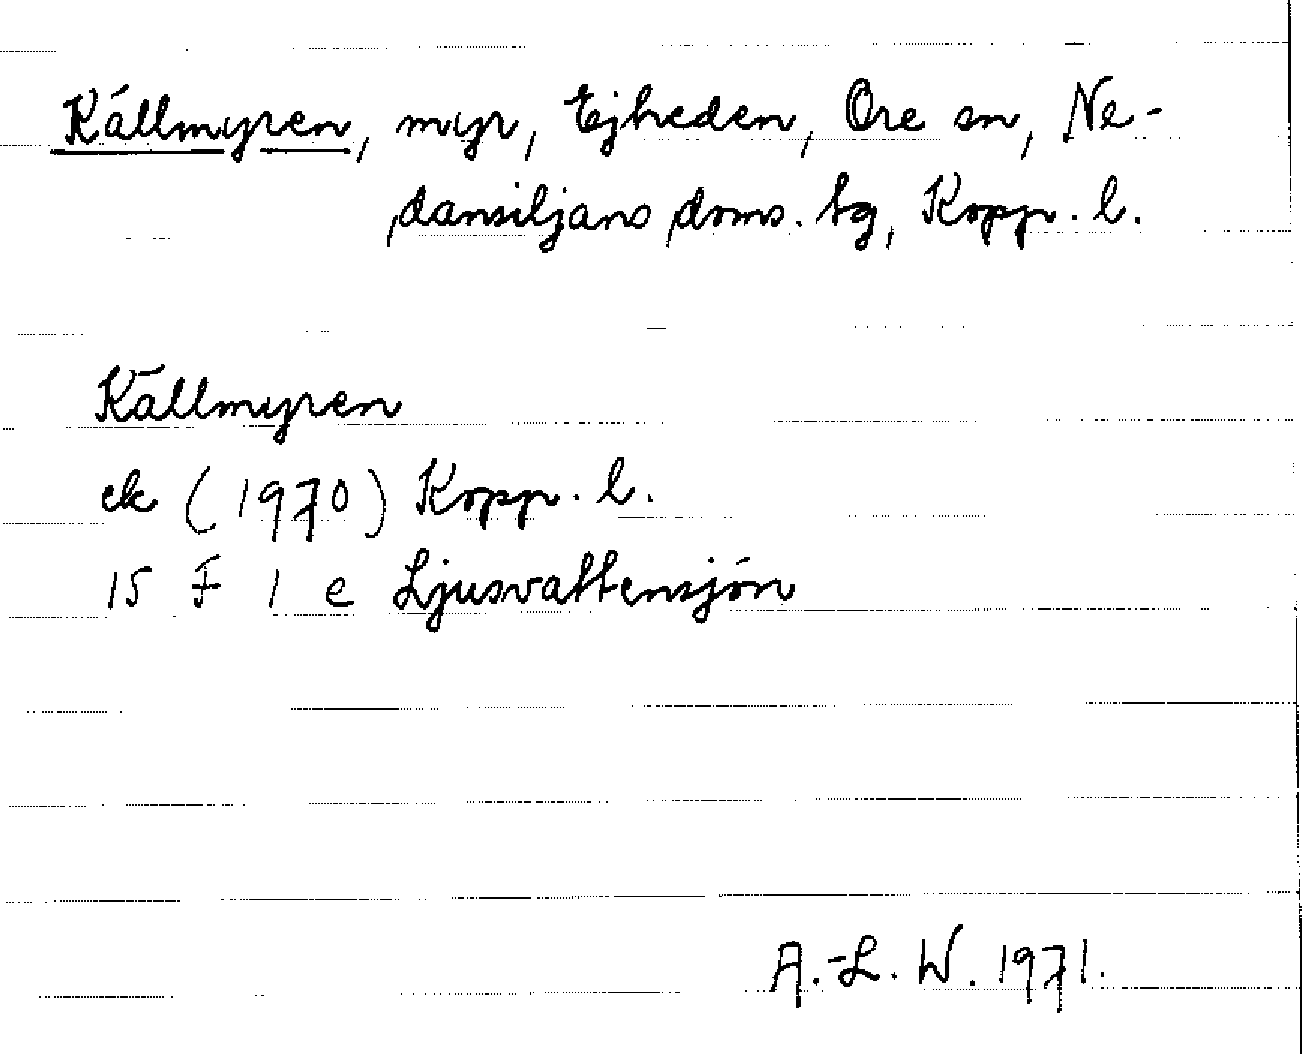 Källmyren, myr, Ejheden, Ore sn, Ne-
dansiljans doms. tg, Kopp. l.
Källmyren
ek (1970) Kopp. l.
15 F 1 e Ljusvattensjön
A.-L. W. 1971.